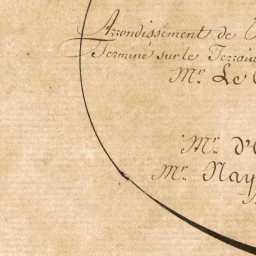 Arrondissement de
Terminé sur le Terrain
Mr. Le
Mr. d'
Mr. Nay